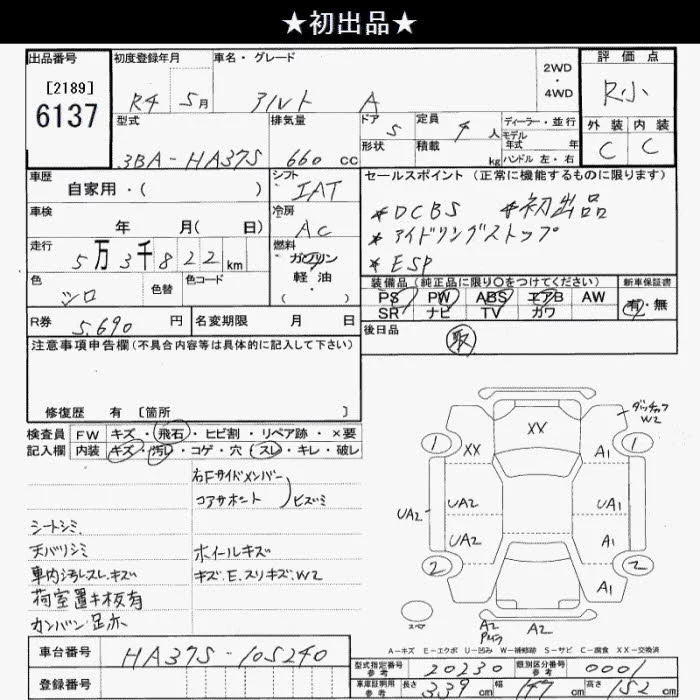 ★初出品★
出品番号
[2189]
6137
初度登録年月
R4 5月
車名・グレード
アルト A
2WD
・
4WD
評価点
R小
外装 内装
C C
型式
3BA-HA37S
排気量
660 cc
ドア
5
形状
定員
4 人
積載
kg
ディーラー・並行
モデル
年式 年
ハンドル 左・右
車歴
自家用・( )
シフト
IAT
車検
年 月( 日)
冷房
AC
走行
5万3千822km
燃料
ガソリン
軽油
( )
色
シロ
色替
色コード
R券
5,690 円
名変期限 月 日
セールスポイント (正常に機能するものに限ります)
*DCBS *初出品
*アイドリングストップ
*ESP
装備品(純正品に限り○をつけてください)
PS PW ABS エアB AW
SR ナビ TV カワ
新車保証書
有・無
後日品
取
注意事項申告欄(不具合内容等は具体的に記入して下さい)
修復歴 有 [箇所 ]
検査員
記入欄
FW キズ・飛石・ヒビ割・リペア跡・×要
内装 キズ・汚レ・コゲ・穴・スレ・キレ・破レ
右Fサイドメンバー
コアサポート
ヒズミ
シートシミ
天バリシミ
車内汚レスレ.キズ
荷室置キ板有
カンバン.足赤
ホイールキズ
キズ.E.スリキズ.W2
XX
XX
1
1
W2
A1
UA2
UA2
UA1
UA2
A1
2
2
A1
A2
A2
A-キズ E-エクボ U-凹み W-補修跡 S-サビ C-腐食 XX-交換済
車台番号
HA37S-105240
登録番号
型式指定番号
参考
20230
類別区分番号
参考
0001
車庫証明用
参考
長さ 339 cm 幅 147 cm 高さ 152 cm